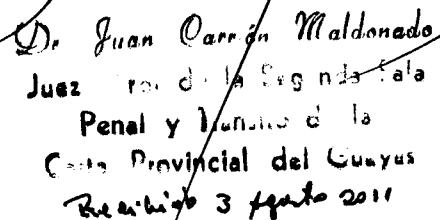 Dr Juan Carrión Maldonado
Juez de la Segunda Sala
Penal y Tránsito de la
Corte Provincial del Guayas
Recibido 3 Agosto 2011